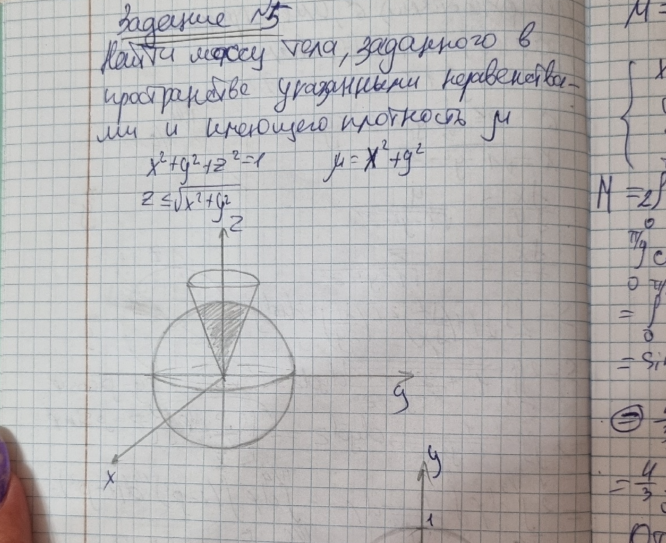 Задание №5
Найти массу тела, заданного в
пространстве указанными неравенства-
ми и имеющего плотность μ
x²+y²+z²=1 μ=x²+y²
z≤√x²+y²
z
y
x
y
1
M=
{ x
M=2∫
0
π/2
0
=∫
0
=sin
=
=4/3